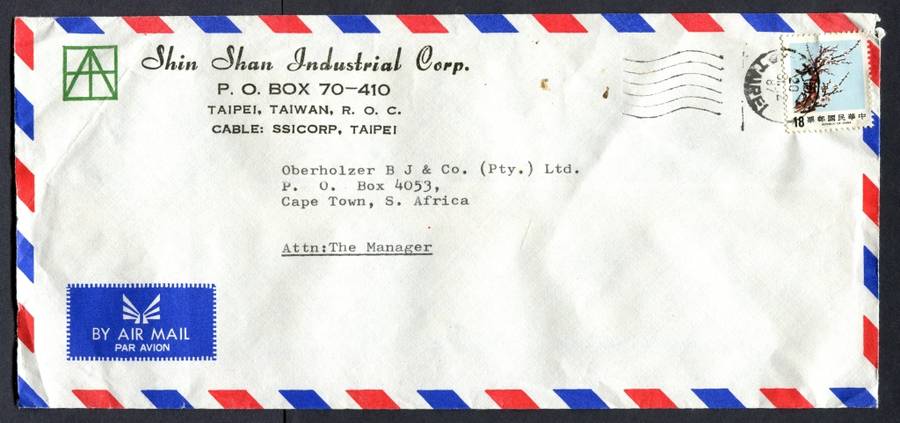 Shin Shan Industrial Corp.
P. O. BOX 70-410
TAIPEI, TAIWAN, R. O. C.
CABLE: SSICORP, TAIPEI
TAIPEI
18 票郵國民華中
REPUBLIC OF CHINA
Oberholzer B J & Co. (Pty.) Ltd.
P. O. Box 4053,
Cape Town, S. Africa
Attn:The Manager
BY AIR MAIL
PAR AVION